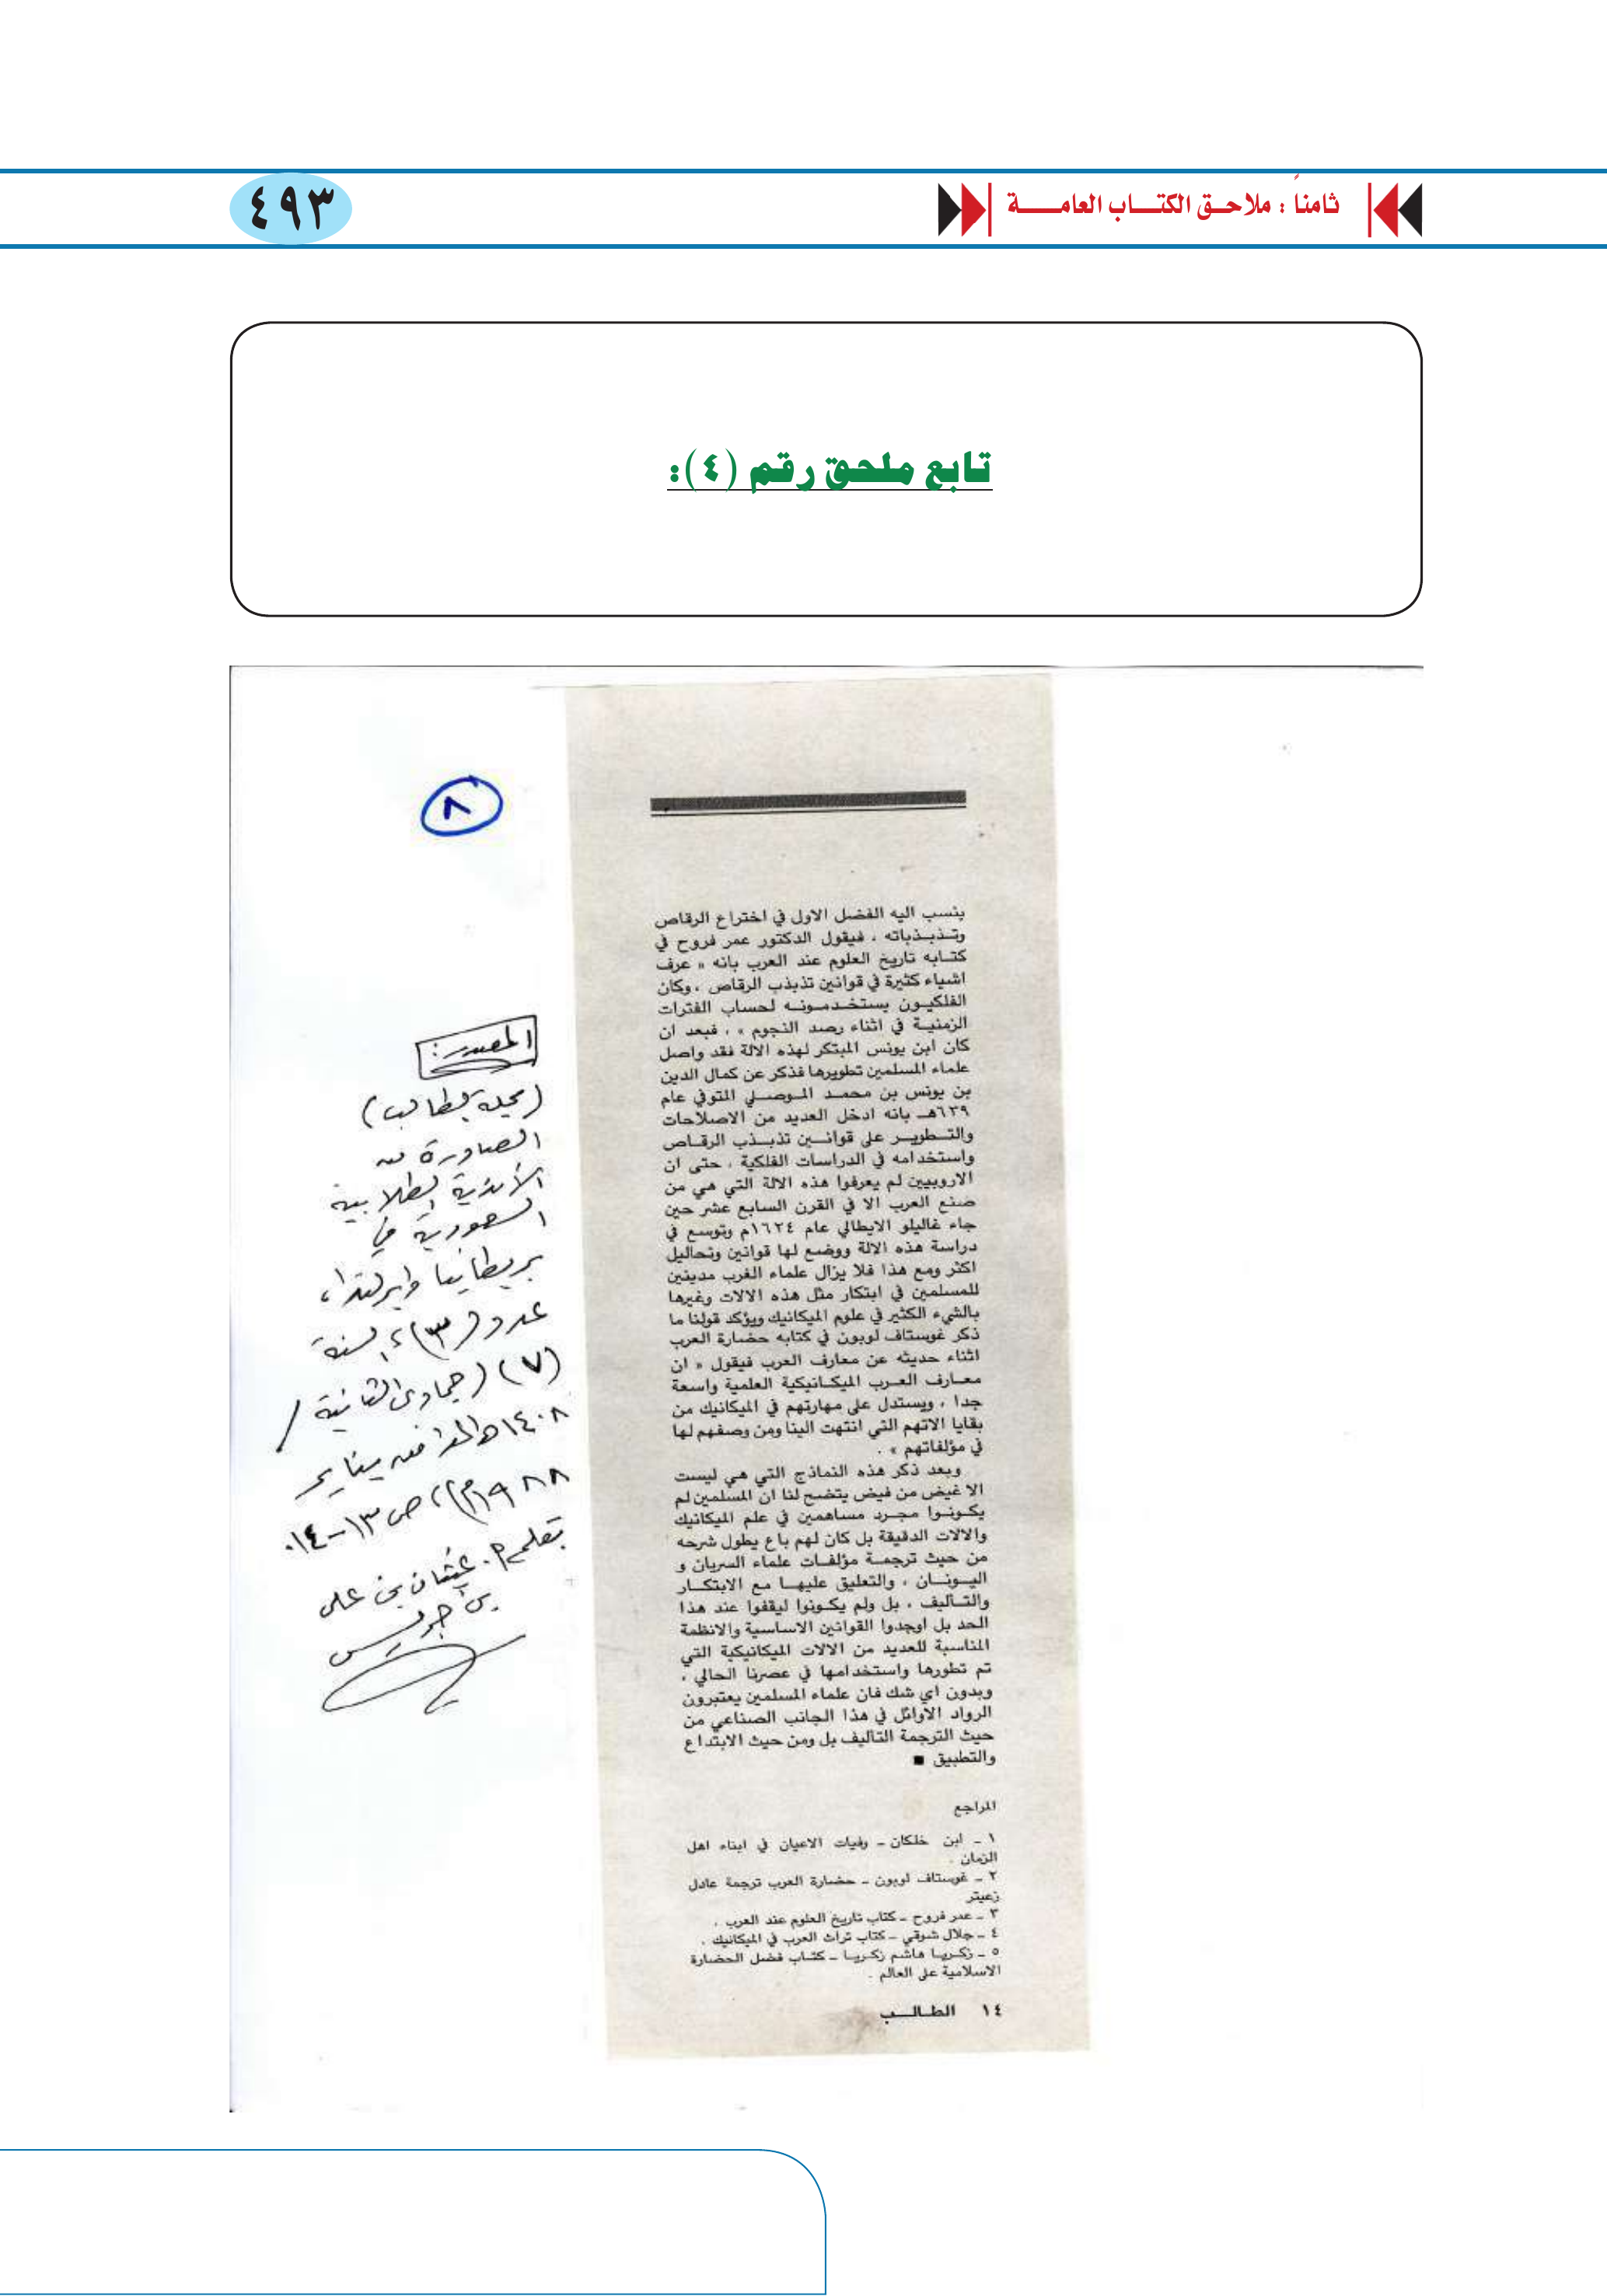 ثامناً : ملاحـق الكتـــاب العامـــــة
٤٩٣
تابع ملحق رقم (٤):
٨
ينسب اليه الفضل الاول في اختراع الرقاص
وتـذبـذباته ، فيقول الدكتور عمر فروخ في
كتـابه تاريخ العلوم عند العرب بانه « عرف
اشياء كثيرة في قوانين تذبذب الرقاص ، وكان
الفلكيـون يستخـدمـونـه لحساب الفترات
الزمنيـة في اثناء رصد النجوم » ، فبعد ان
كان ابن يونس المبتكر لهذه الالة فقد واصل
علماء المسلمين تطويرها فذكر عن كمال الدين
بن يونس بن محمـد المـوصـلي المتوفي عام
٦٣٩هـ بانه ادخل العديد من الاصلاحات
والتـطويـر على قوانـين تذبـذب الرقـاص
واستخدامه في الدراسات الفلكية ، حتى ان
الاروبيين لم يعرفوا هذه الالة التي هي من
صنع العرب الا في القرن السابع عشر حين
جاء غاليلو الايطالي عام ١٦٢٤م وتوسع في
دراسة هذه الالة ووضع لها قوانين وتحاليل
اكثر ومع هذا فلا يزال علماء الغرب مدينين
للمسلمين في ابتكار مثل هذه الالات وغيرها
بالشيء الكثير في علوم الميكانيك ويؤكد قولنا ما
ذكر غوستاف لوبون في كتابه حضارة العرب
اثناء حديثه عن معارف العرب فيقول « ان
معـارف العـرب الميكـانيكية العلمية واسعة
جدا ، ويستدل على مهارتهم في الميكانيك من
بقايا الاتهم التي انتهت الينا ومن وصفهم لها
في مؤلفاتهم » .
وبعد ذكر هذه النماذج التي هي ليست
الا غيض من فيض يتضح لنا ان المسلمين لم
يكـونـوا مجـرد مساهمين في علم الميكانيك
والالات الدقيقة بل كان لهم باع يطول شرحه
من حيث ترجمـة مؤلفـات علماء السريان و
اليـونـان ، والتعليق عليهـا مع الابتكـار
والتـأليف ، بل ولم يكـونوا ليقفوا عند هذا
الحد بل اوجدوا القوانين الاساسية والانظمة
المناسبة للعديد من الالات الميكانيكية التي
تم تطورها واستخدامها في عصرنا الحالي ،
وبدون اي شك فان علماء المسلمين يعتبرون
الرواد الاوائل في هذا الجانب الصناعي من
حيث الترجمة التاليف بل ومن حيث الابتداع
والتطبيق ■
المراجع
١ ـ ابن خلكان ـ وفيات الاعيان في ابناء اهل
الزمان .
٢ ـ غوستاف لوبون ـ حضارة العرب ترجمة عادل
زعيتر
٣ ـ عمر فروح ـ كتاب تاريخ العلوم عند العرب .
٤ ـ جلال شوقي ـ كتاب تراث العرب في الميكانيك .
٥ ـ زكـريـا هاشم زكـريـا ـ كتـاب فضل الحضارة
الاسلامية على العالم .
١٤ الطـالـــب
المصدر:
(مجلة الطالب)
الصادرة عن
الأندية الطلابية
السعودية في
بريطانيا وايرلندا،
عدد (٣)، السنة
(٧) (جمادى الثانية /
١٤٠٨هـ الموافق يناير
١٩٨٨م)، ص ١٣-١٤.
بقلم م. عثمان بن علي
بن جريس